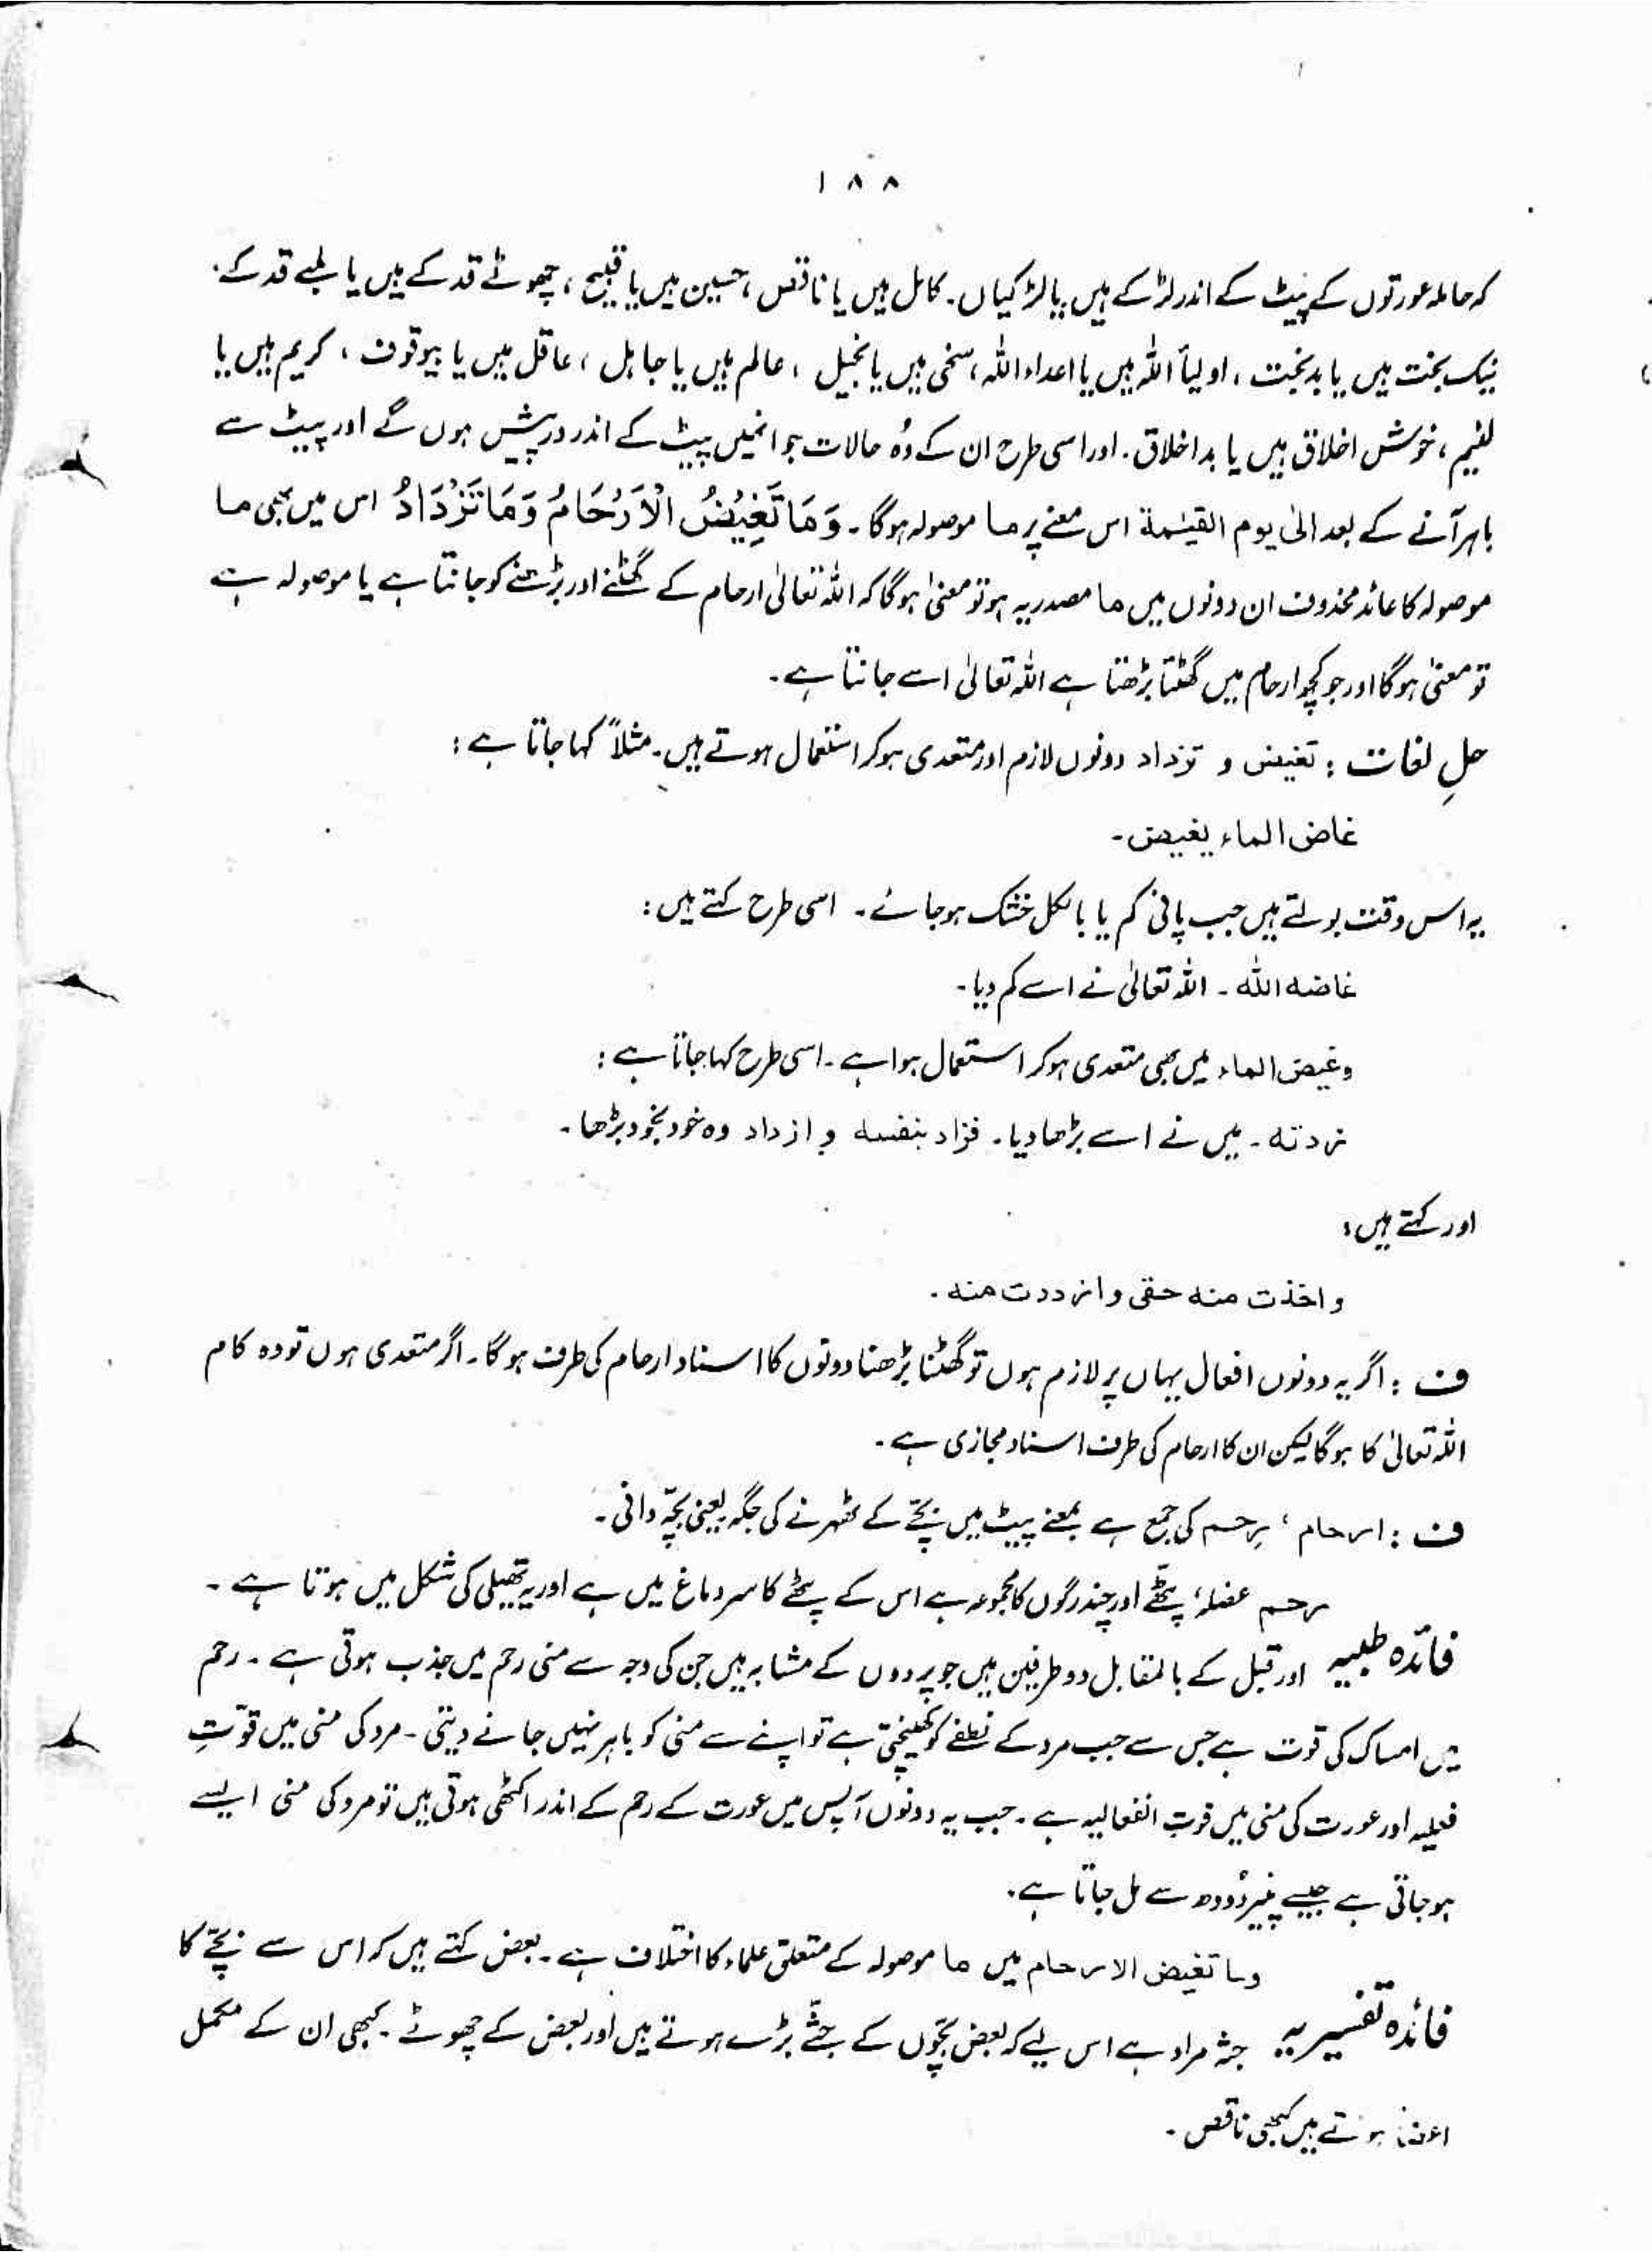 ۱۸۸
کہ حاملہ عورتوں کے پیٹ کے اندر لڑکے ہیں یا لڑکیاں۔ کامل ہیں یا ناقص، حسین ہیں یا قبیح، چھوٹے قد کے ہیں یا لمبے قد کے۔
نیک بخت ہیں یا بدبخت، اولیأ اللہ ہیں یا اعداء اللہ، سخی ہیں یا بخیل، عالم ہیں یا جاہل، عاقل ہیں یا بیوقوف، کریم ہیں یا
لئیم، خوش اخلاق ہیں یا بداخلاق۔ اور اسی طرح ان کے وُہ حالات جو انھیں پیٹ کے اندر درپیش ہوں گے اور پیٹ سے
باہر آنے کے بعد الیٰ یوم القیٰمۃ اس معنے پر ما موصولہ ہوگا۔ وَمَا تَغِيْضُ الْاَرْحَامُ وَمَا تَزْدَادُ اس میں بھی ما
موصولہ کا عائد محذوف ان دونوں میں ما مصدریہ ہو تو معنیٰ ہوگا کہ اللہ تعالیٰ ارحام کے گھٹنے اور بڑھنے کو جانتا ہے یا موصولہ ہے
تو معنیٰ ہوگا اور جو کچھ ارحام میں گھٹتا بڑھتا ہے اللہ تعالیٰ اسے جانتا ہے۔
حلِ لغات : تغیض و تزداد دونوں لازم اور متعدی ہوکر استعمال ہوتے ہیں۔ مثلاً کہا جاتا ہے :
غاض الماء یغیض۔
یہ اس وقت بولتے ہیں جب پانی کم یا بالکل خشک ہوجائے۔ اسی طرح کہتے ہیں :
غاضہ اللہ۔ اللہ تعالیٰ نے اسے کم دیا۔
وغیض الماء میں بھی متعدی ہوکر استعمال ہوا ہے۔ اسی طرح کہا جاتا ہے :
زدتہ۔ میں نے اسے بڑھا دیا۔ فزاد بنفسہ و ازداد وہ خود بخود بڑھا۔
اور کہتے ہیں :
و اخذت منہ حقی و ازددت منہ۔
ف : اگر یہ دونوں افعال یہاں پر لازم ہوں تو گھٹنا بڑھنا دونوں کا اسناد ارحام کی طرف ہوگا۔ اگر متعدی ہوں تو وہ کام
اللہ تعالیٰ کا ہوگا لیکن ان کا ارحام کی طرف اسناد مجازی ہے۔
ف : ارحام، رحم کی جمع ہے بمعنے پیٹ میں بچّے کے ٹھہرنے کی جگہ یعنی بچّہ دانی۔
رحم عضلہ، پٹھّے اور چند رگوں کا مجموعہ ہے اس کے پٹھے کا سر دماغ میں ہے اور یہ تھیلی کی شکل میں ہوتا ہے۔
فائدہ طبیہ اور قبل کے بالمقابل دو طرفین ہیں جو پردوں کے مشابہ ہیں جن کی وجہ سے منی رحم میں جذب ہوتی ہے۔ رحم
میں امساک کی قوت ہے جس سے جب مرد کے نطفے کو کھینچتی ہے تو اپنے سے منی کو باہر نہیں جانے دیتی۔ مرد کی منی میں قوّتِ
فعلیہ اور عورت کی منی میں قوتِ انفعالیہ ہے۔ جب یہ دونوں آپس میں عورت کے رحم کے اندر اکٹھی ہوتی ہیں تو مرد کی منی ایسے
ہوجاتی ہے جیسے پنیر دُودھ سے مل جاتا ہے۔
وما تغیض الارحام میں ما موصولہ کے متعلق علماء کا اختلاف ہے۔ بعض کہتے ہیں کہ اس سے بچّے کا
فائدہ تفسیریہ جثہ مراد ہے اس لیے کہ بعض بچّوں کے جثّے بڑے ہوتے ہیں اور بعض کے چھوٹے۔ کبھی ان کے مکمل
اعضا ہوتے ہیں کبھی ناقص۔